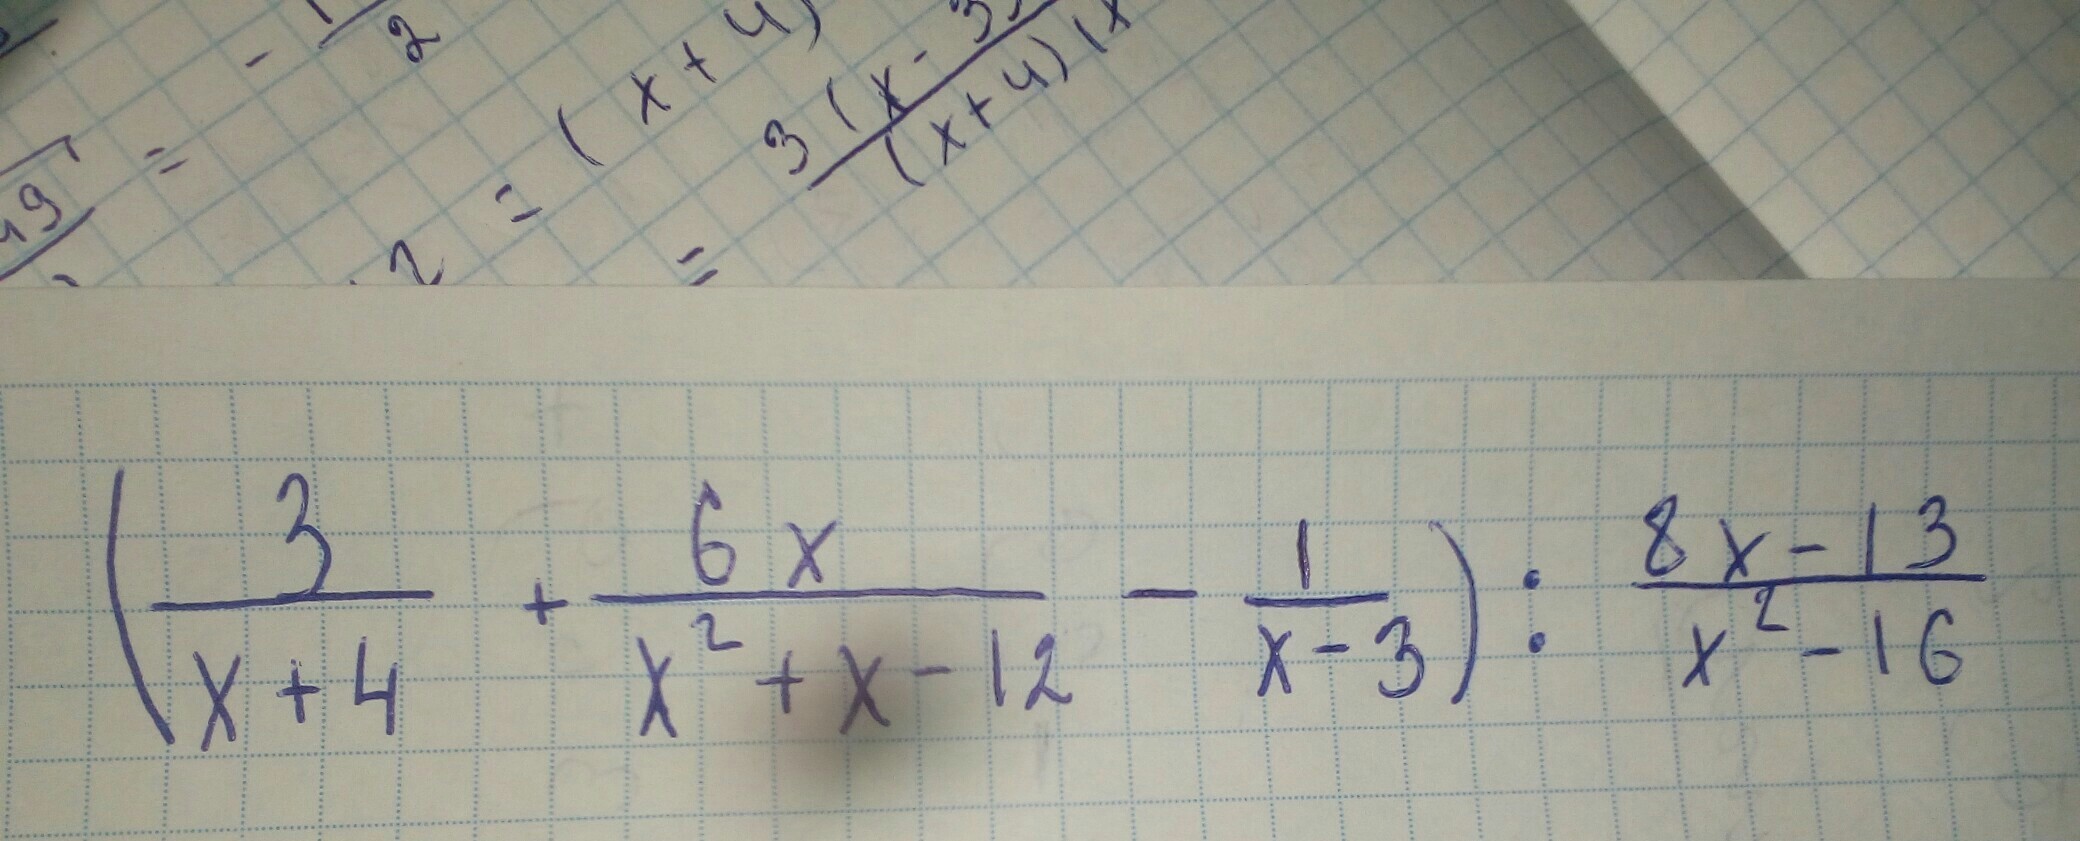 - 1/2
49 =
2 = (x+4)
= 3(x-3)/(x+4)(x
(3/(x+4) + 6x/(x²+x-12) - 1/(x-3)) : (8x-13)/(x²-16)